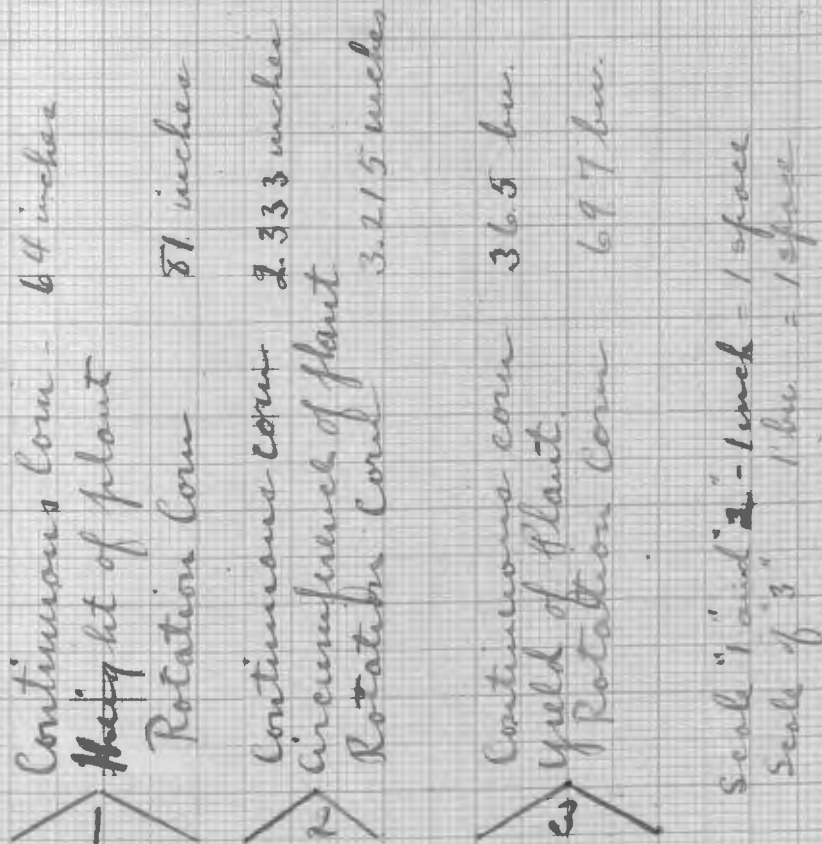 1
Continuous Corn - 64 inches
Height of plant
Rotation Corn 81 inches
2
Continuous corn 2.333 inches
Circumference of plant
Rotation Corn 3.215 inches
3
Continuous corn 36.5 bu.
Yield of Plant.
Rotation Corn 69.7 bu.
Scale "1" and "2" - 1 inch = 1 space
Scale of "3" 1 bu. = 1 space